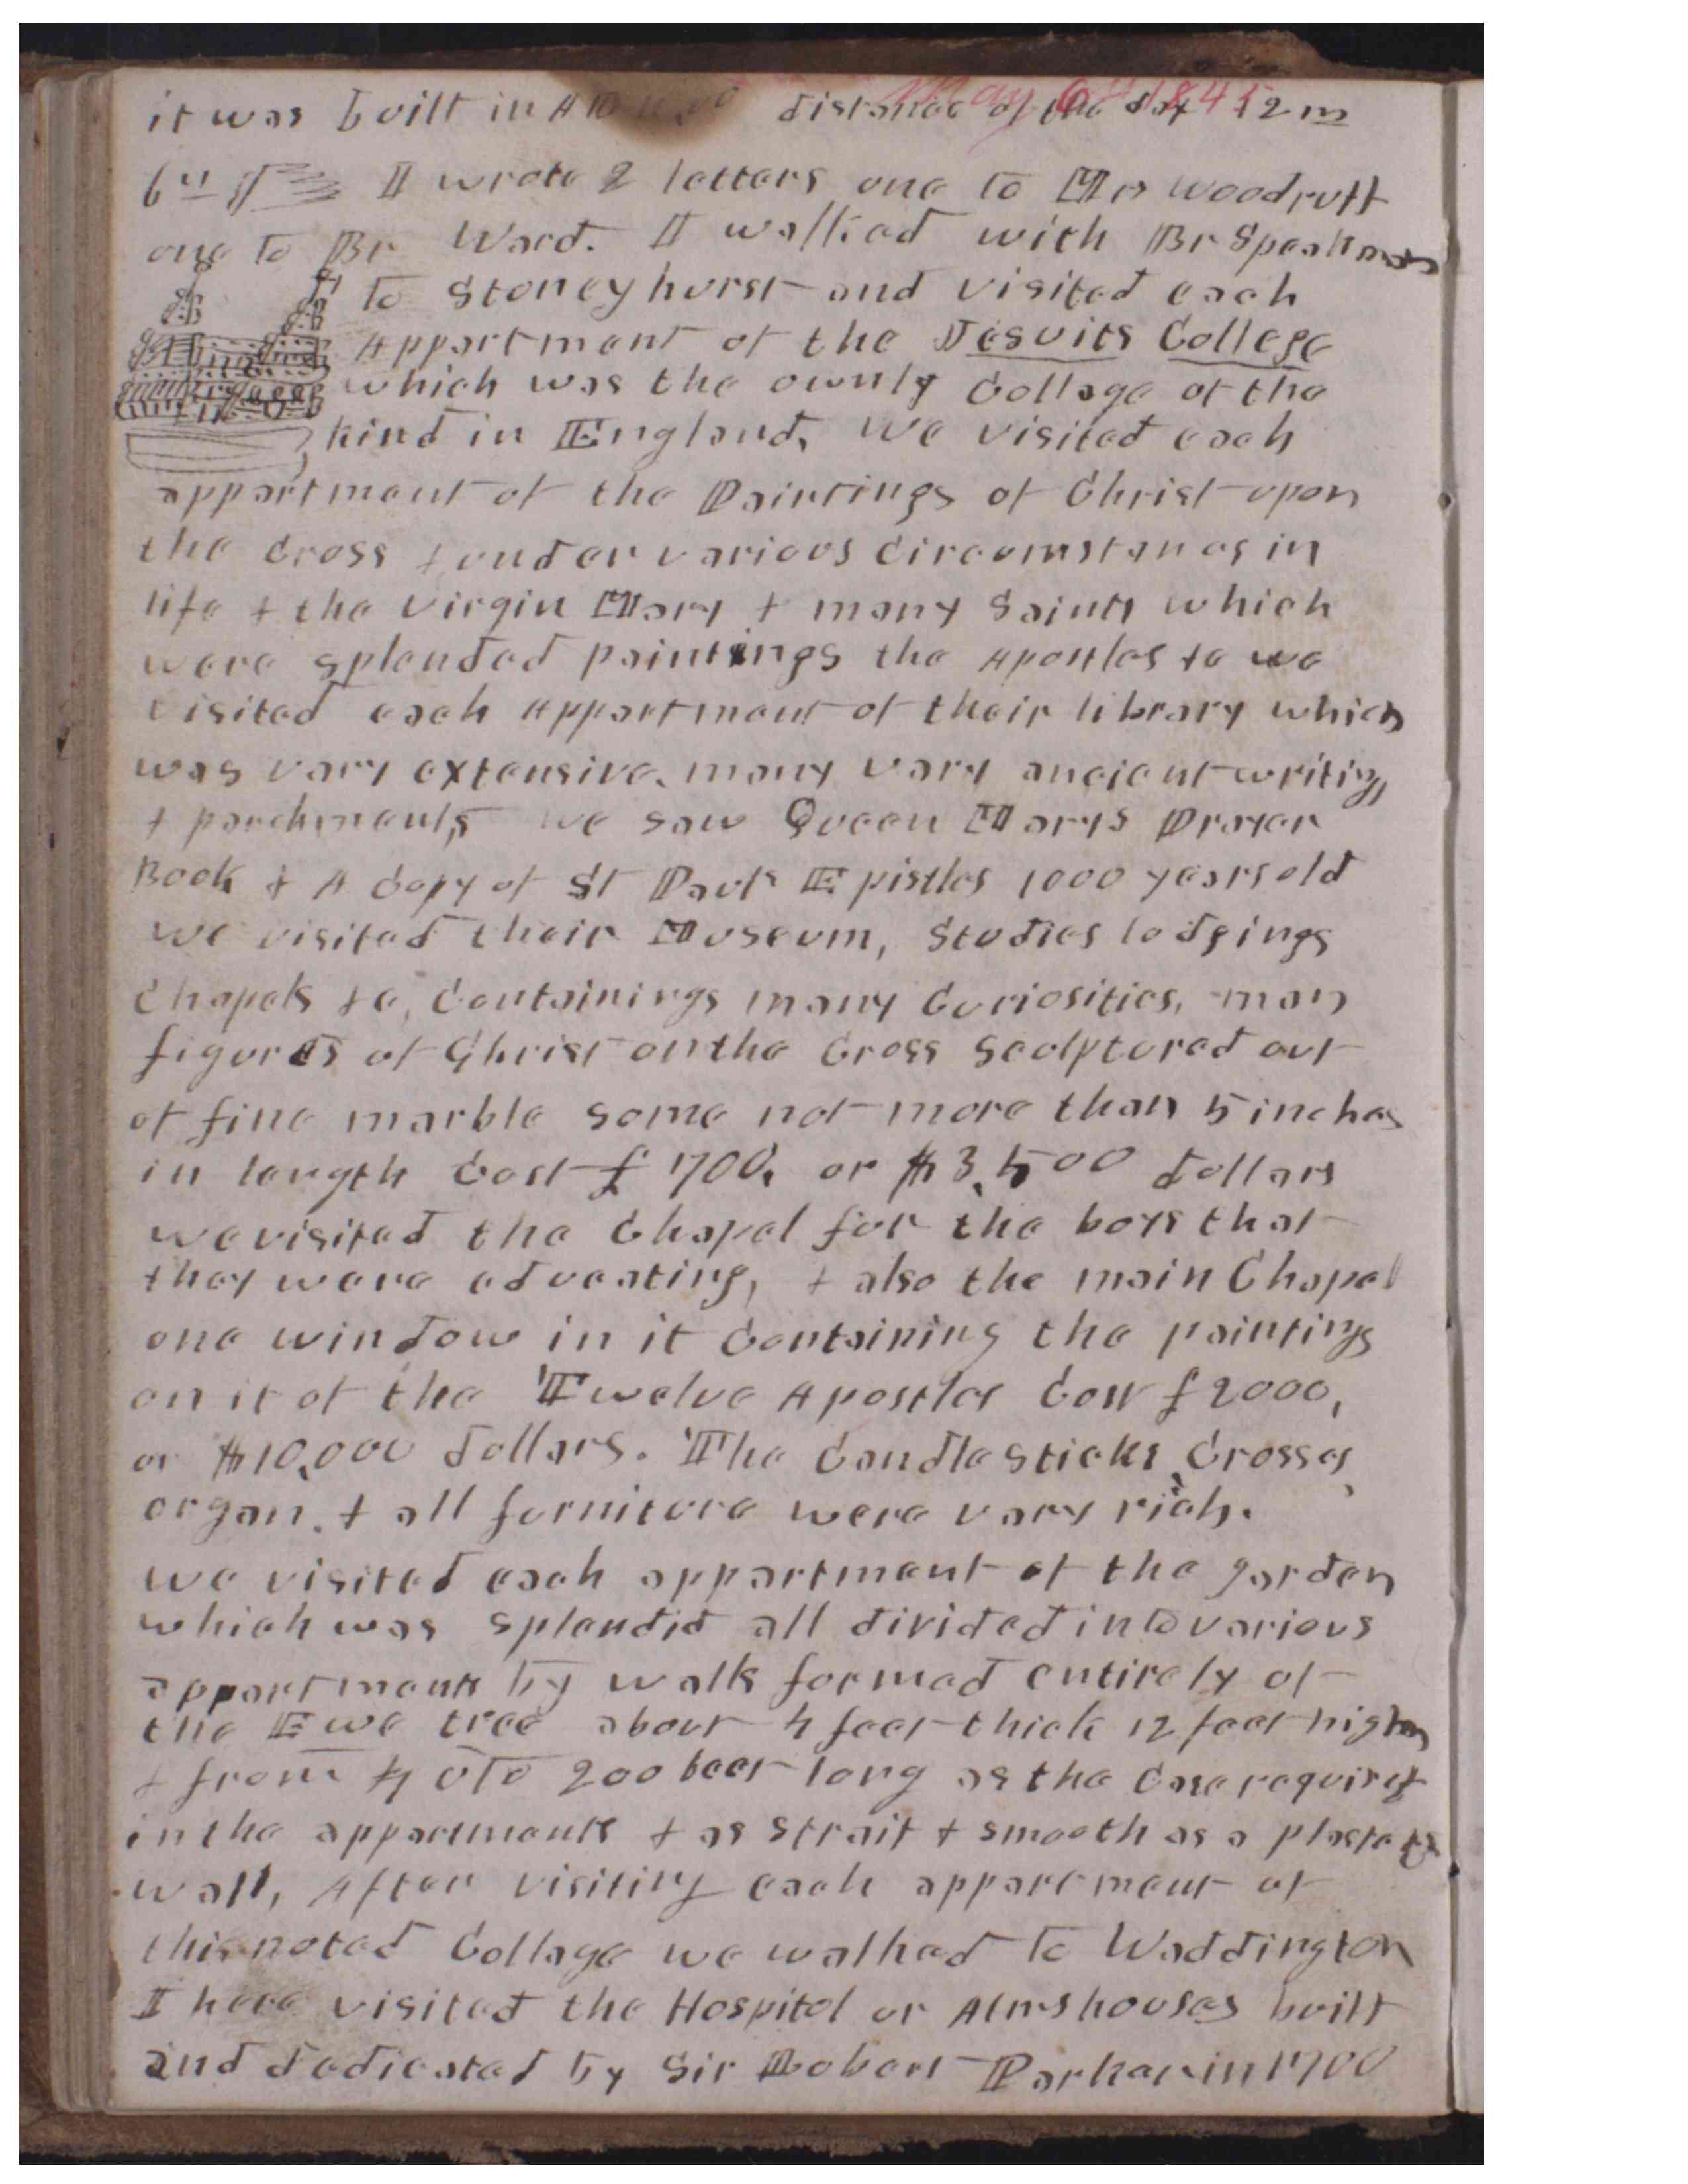 May 6th 1845
it was built in AD distance of the day 12 m
6th I wrote 2 letters one to Mrs Woodruff
one to Br Ward. I walked with Br Speakman
to Stoneyhurst and visited each
Appartment of the Jesuits College
which was the ownly College of the
kind in England, we visited each
appartment of the Paintings of Christ upon
the Cross & under various Circumstances in
life & the virgin Mary & many Saints which
were splended paintings the Apostles &c we
visited each Appartment of their library which
was vary extensive. many vary ancient writing
& parchments we saw Queen Marys Prayer
Book & A Copy of St Pauls Epistles 1000 years old
we visited their Museum, Studies lodgings
Chapels &c, Containings many Curiosities, many
figures of Christ on the Cross Sculptured out
of fine marble some not more than 5 inches
in length Cost £700, or $3,500 dollars
we visited the Chapel for the boys that
they were educating, & also the main Chapel
one window in it Containing the paintings
on it of the Twelve Apostles Cost £2000,
or $10,000 dollars. The Candlesticks, Crosses,
organ, & all furniture were vary rich.
we visited each appartment of the garden
which was splendid all divided into various
appartments by walls formed entirely of
the Ewe tree about 4 feet thick 12 feet high
& from 40 to 200 feet long as the Case required
in the appartments & as strait & smooth as a plasterd
wall, After visiting each appartment of
this noted Collage we walked to Waddington
I here visited the Hospital or Almshouses built
and dedicated by Sir Robert Parker in 1700